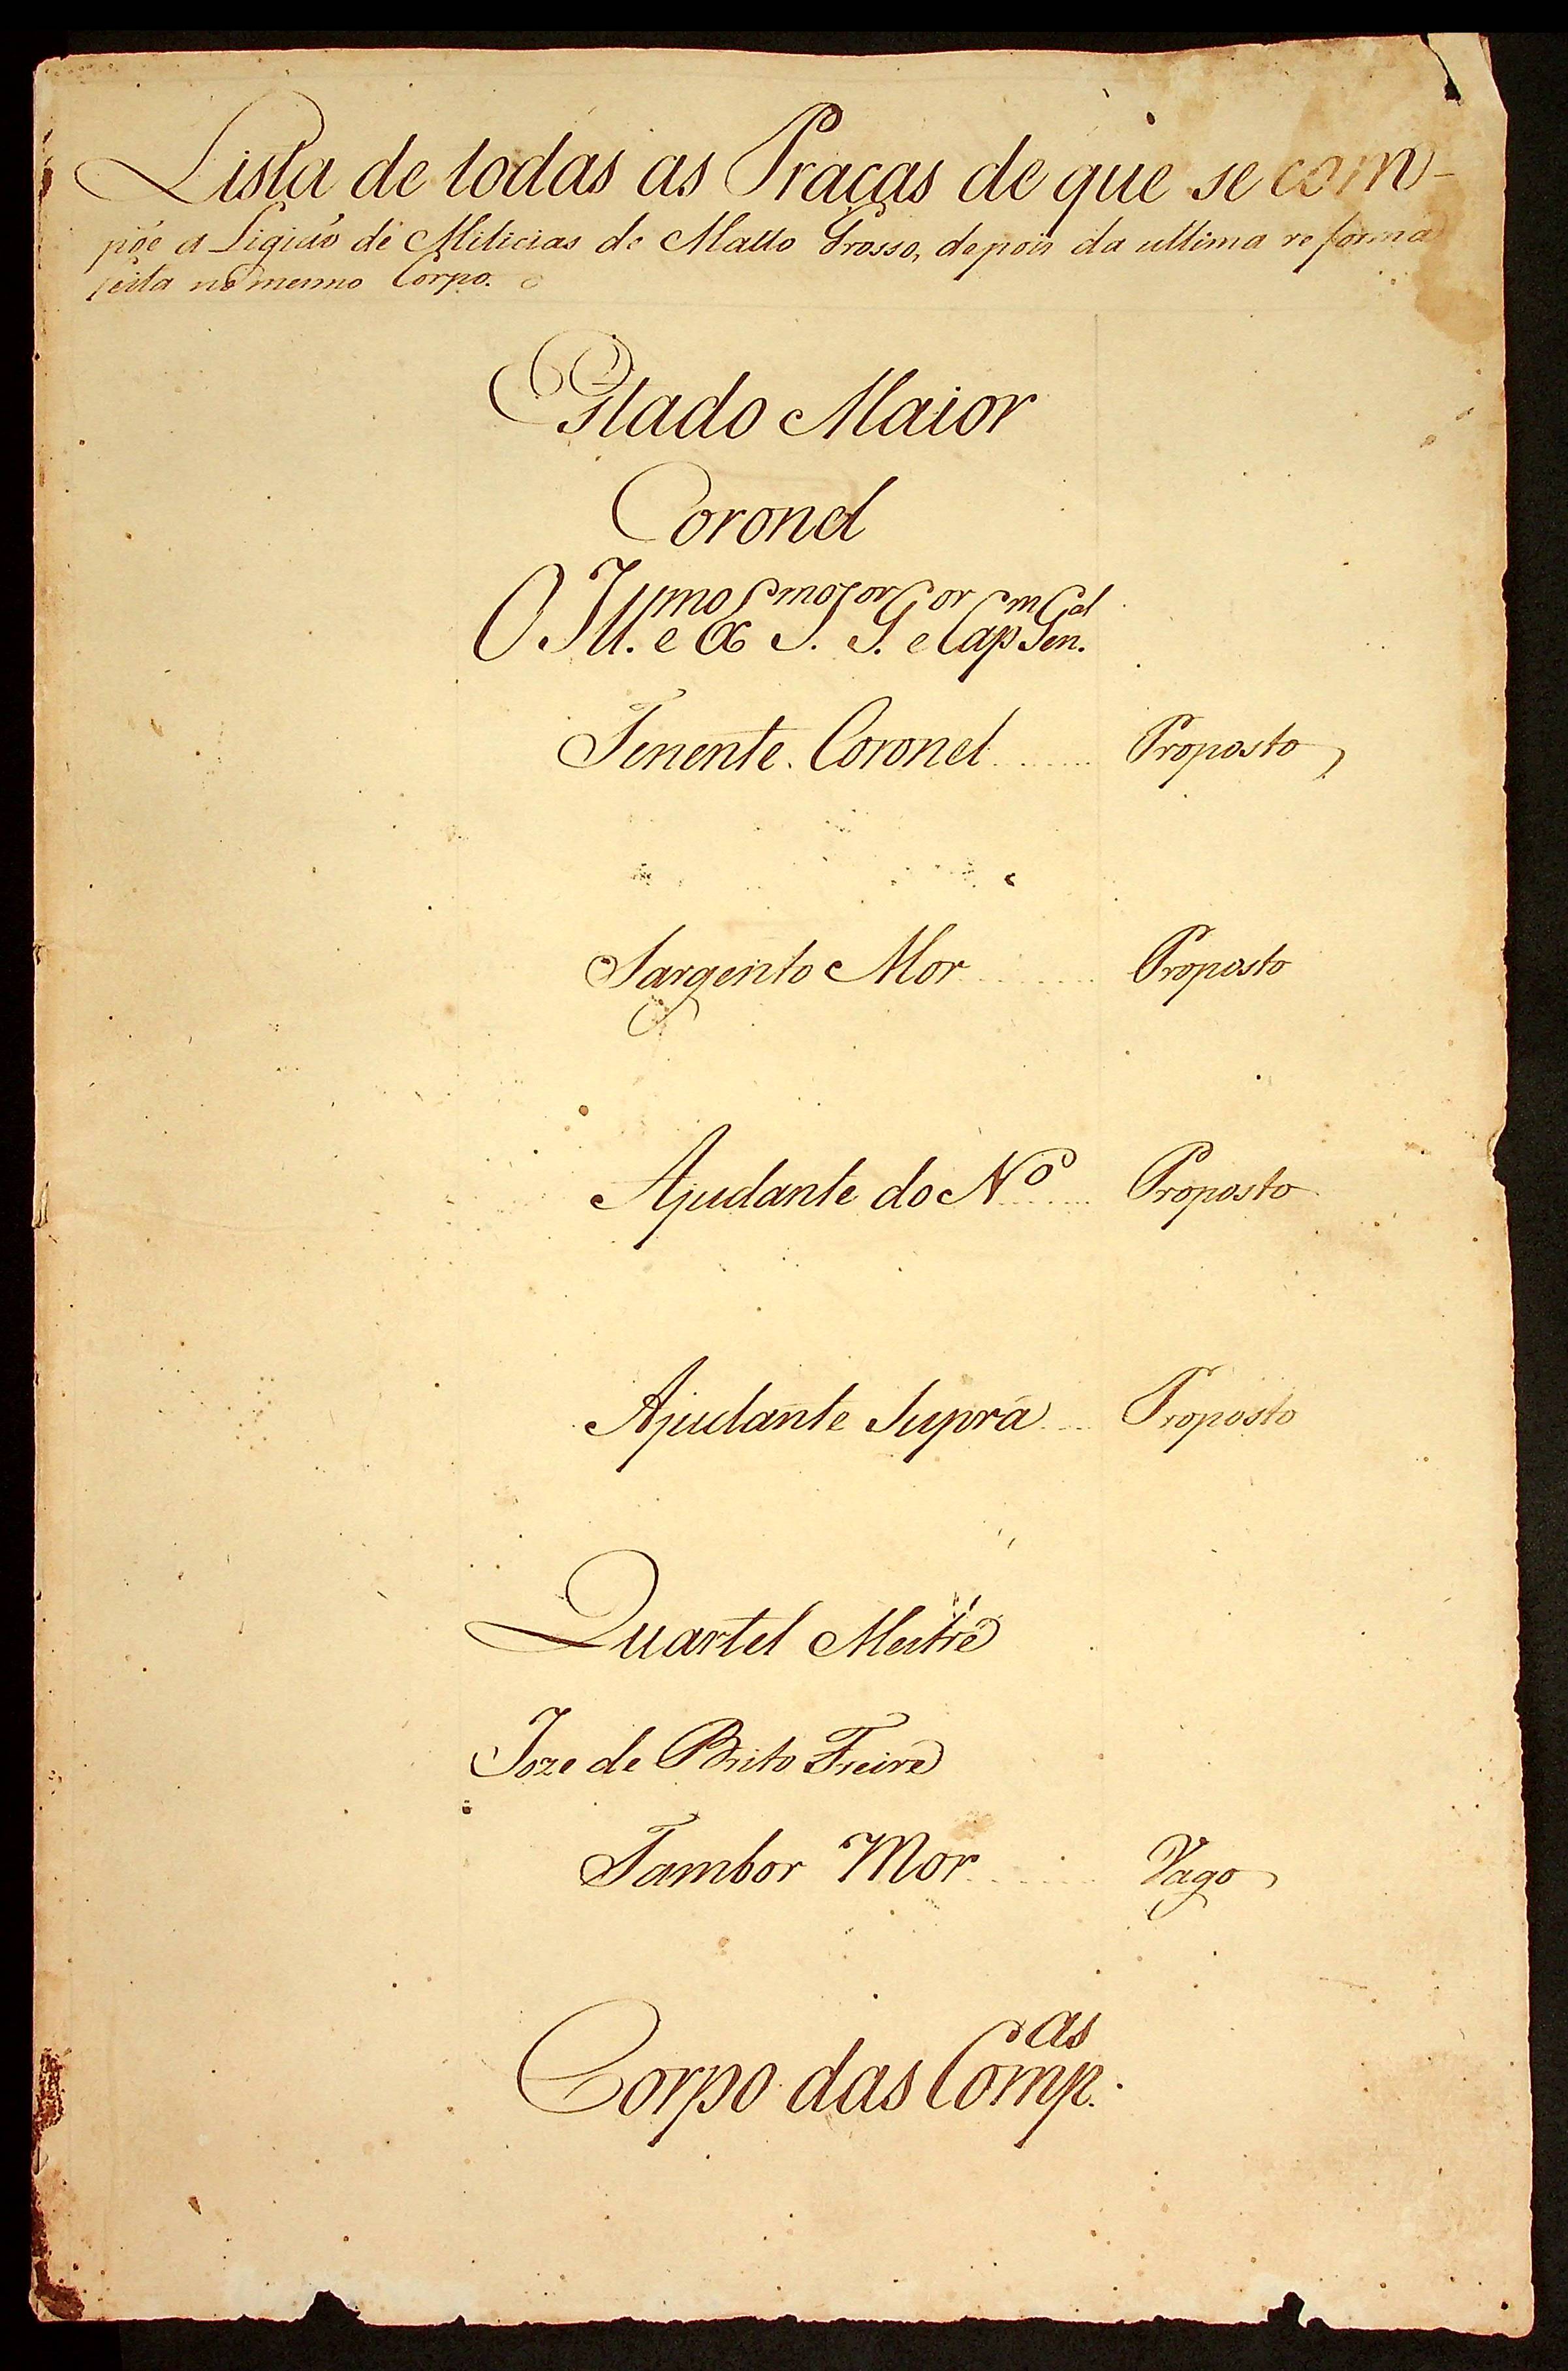 Lista de todas as Praças de que se com-
põe a Ligiaõ de Milicias de Matto Grosso, depois da ultima reforma
feita no mesmo Corpo.
Estado Maior
Coronel
O Ill.mo e Ex.mo S.or G.or e Cap.m Gen.al
Tenente Coronel ........ Proposto
Sargento Mor ........ Proposto
Ajudante do No ........ Proposto
Ajudante Supra .... Proposto
Quartel Mestre
Joze de Brito Freire
Tambor Mor ........ Vago
Corpo das Comp.as